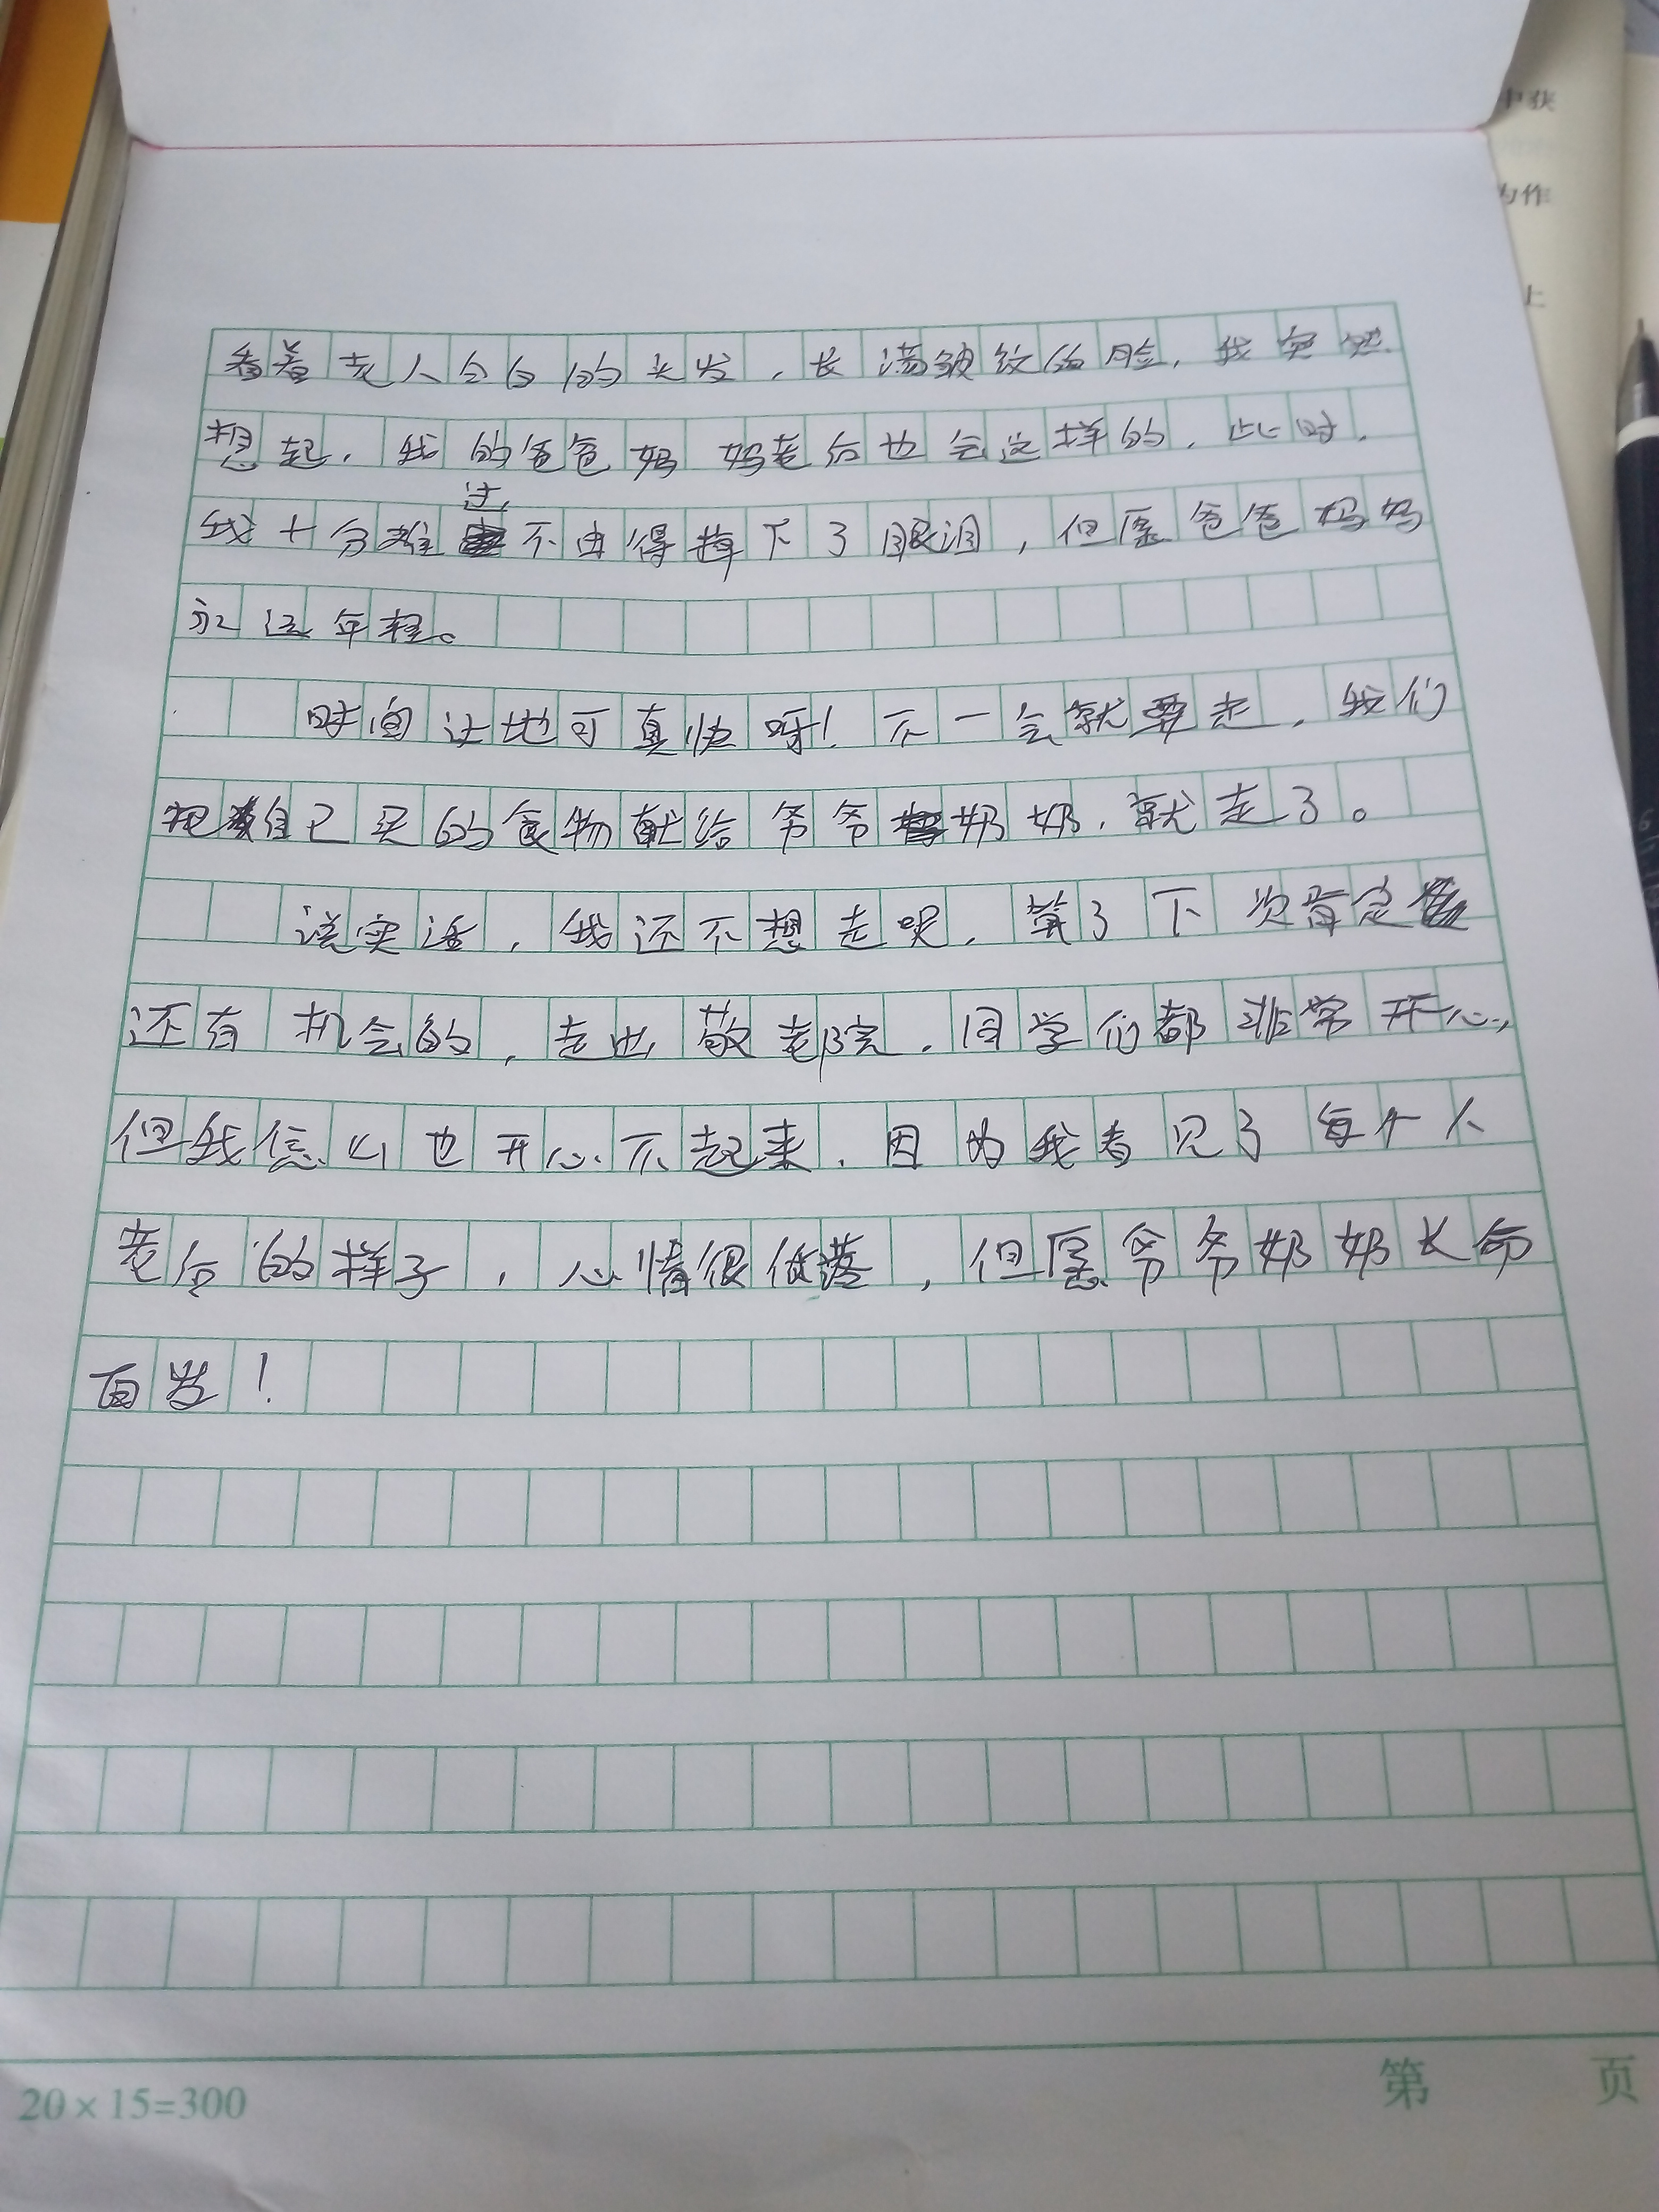 中获
为作
上
看着老人全白的头发，长满皱纹的脸，我突然
想起，我的爸爸妈妈老后也会这样的，此时，
我十分难过，不由得掉下了眼泪，但愿爸爸妈妈
永远年轻。
时间过地可真快呀！不一会就要走，我们
把自己买的食物献给爷爷奶奶，就走了。
说实话，我还不想走呢，算了下次肯定
还有机会的，走出敬老院，同学们都非常开心，
但我信心也开心不起来，因为我看见了每个人
老后的样子，心情很低落，但愿爷爷奶奶长命
百岁！
20×15=300
第 页